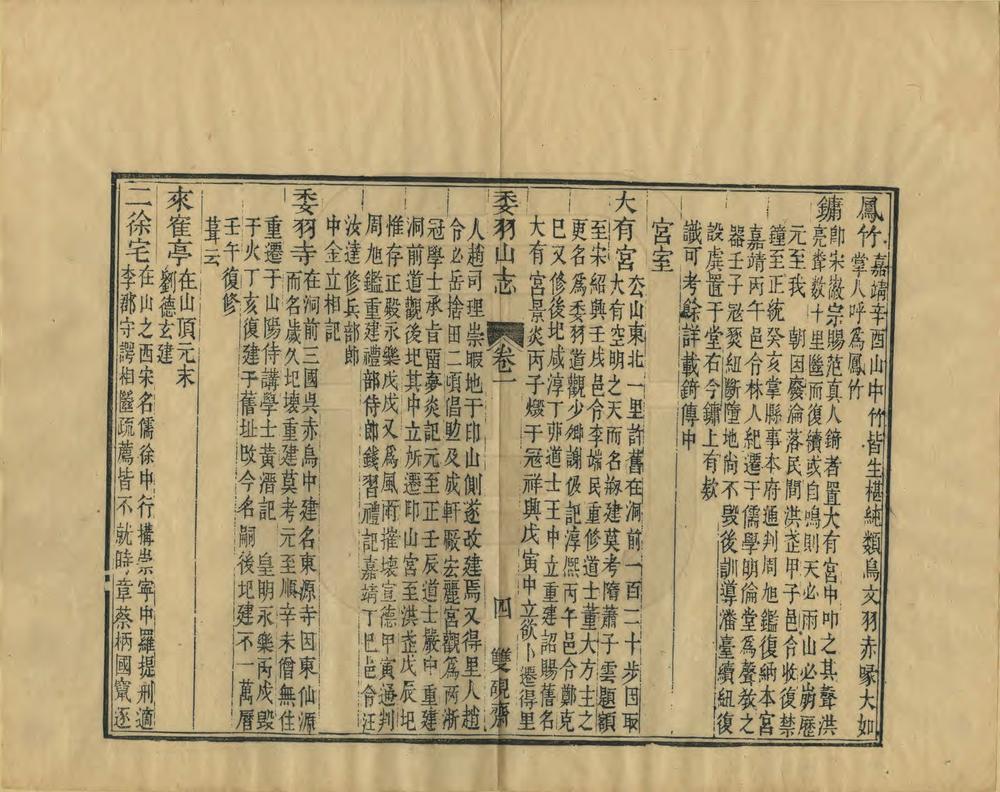 鳳竹嘉靖辛酉山中竹皆生椹純類鳥文羽赤喙大如
掌人呼爲鳳竹
鏞卽宋徽宗賜范真人鑄者置大有宮中叩之其聲洪
亮聲数十里隘而復續或自鳴則天必雨山必崩歷
元至我　朝因廢淪落民間洪武甲子邑令收復禁
鐘至正統癸亥掌縣事本府通判周旭鑑復納本宮
嘉靖丙午邑令林人紀遷于儒學明倫堂爲聲教之
器壬子冦燹紐斷墮地尙不毁後訓導潘臺續紐復
設虡置于堂右今鏞上有欵
識可考餘詳載錡傳中
宮室
大有宮在山東北一里許舊在洞前一百二十步因取
大有空明之天而名剏建莫考隋蕭子雲題額
至宋紹興壬戌邑令李端民重修道士董大方主之
更名爲委羽道觀少卿謝伋記淳熈丙午邑令鄭克
巳又修後圮咸淳丁夘道士王中立重建詔賜舊名
大有宮景炎丙子燬于冦祥興戊寅中立欲卜遷得里
委羽山志　卷一　四　雙硯齋
人趙司理崇暇地于印山側遂改建焉又得里人趙
令必岳捨田二頃倡助及成軒厰宏麗宮觀爲兩浙
冠學士承旨留夢炎記元至正壬辰道士嚴中重建
洞前道觀後圮其中立所遷印山宮至洪武戊辰圮
惟存正殿永樂戊戌又爲風雨摧壊宣德甲寅通判
周旭鑑重建禮部侍郎錢習禮記嘉靖丁巳邑令汪
汝達修兵部郎
中金立相記
委羽寺在洞前三國呉赤烏中建名東源寺因東仙源
而名歲久圮壊重建莫考元至順辛未僧無住
重遷于山陽侍講學士黃溍記　皇明永樂丙戌毁
于火丁亥復建于舊址改今名嗣後圮建不一萬曆
壬午復修
葺云
來隺亭在山頂元末
劉德玄建
二徐宅在山之西宋名儒徐中行搆崇寧中羅提刑適
李郡守諤相繼疏薦皆不就時章蔡柄國竄逐